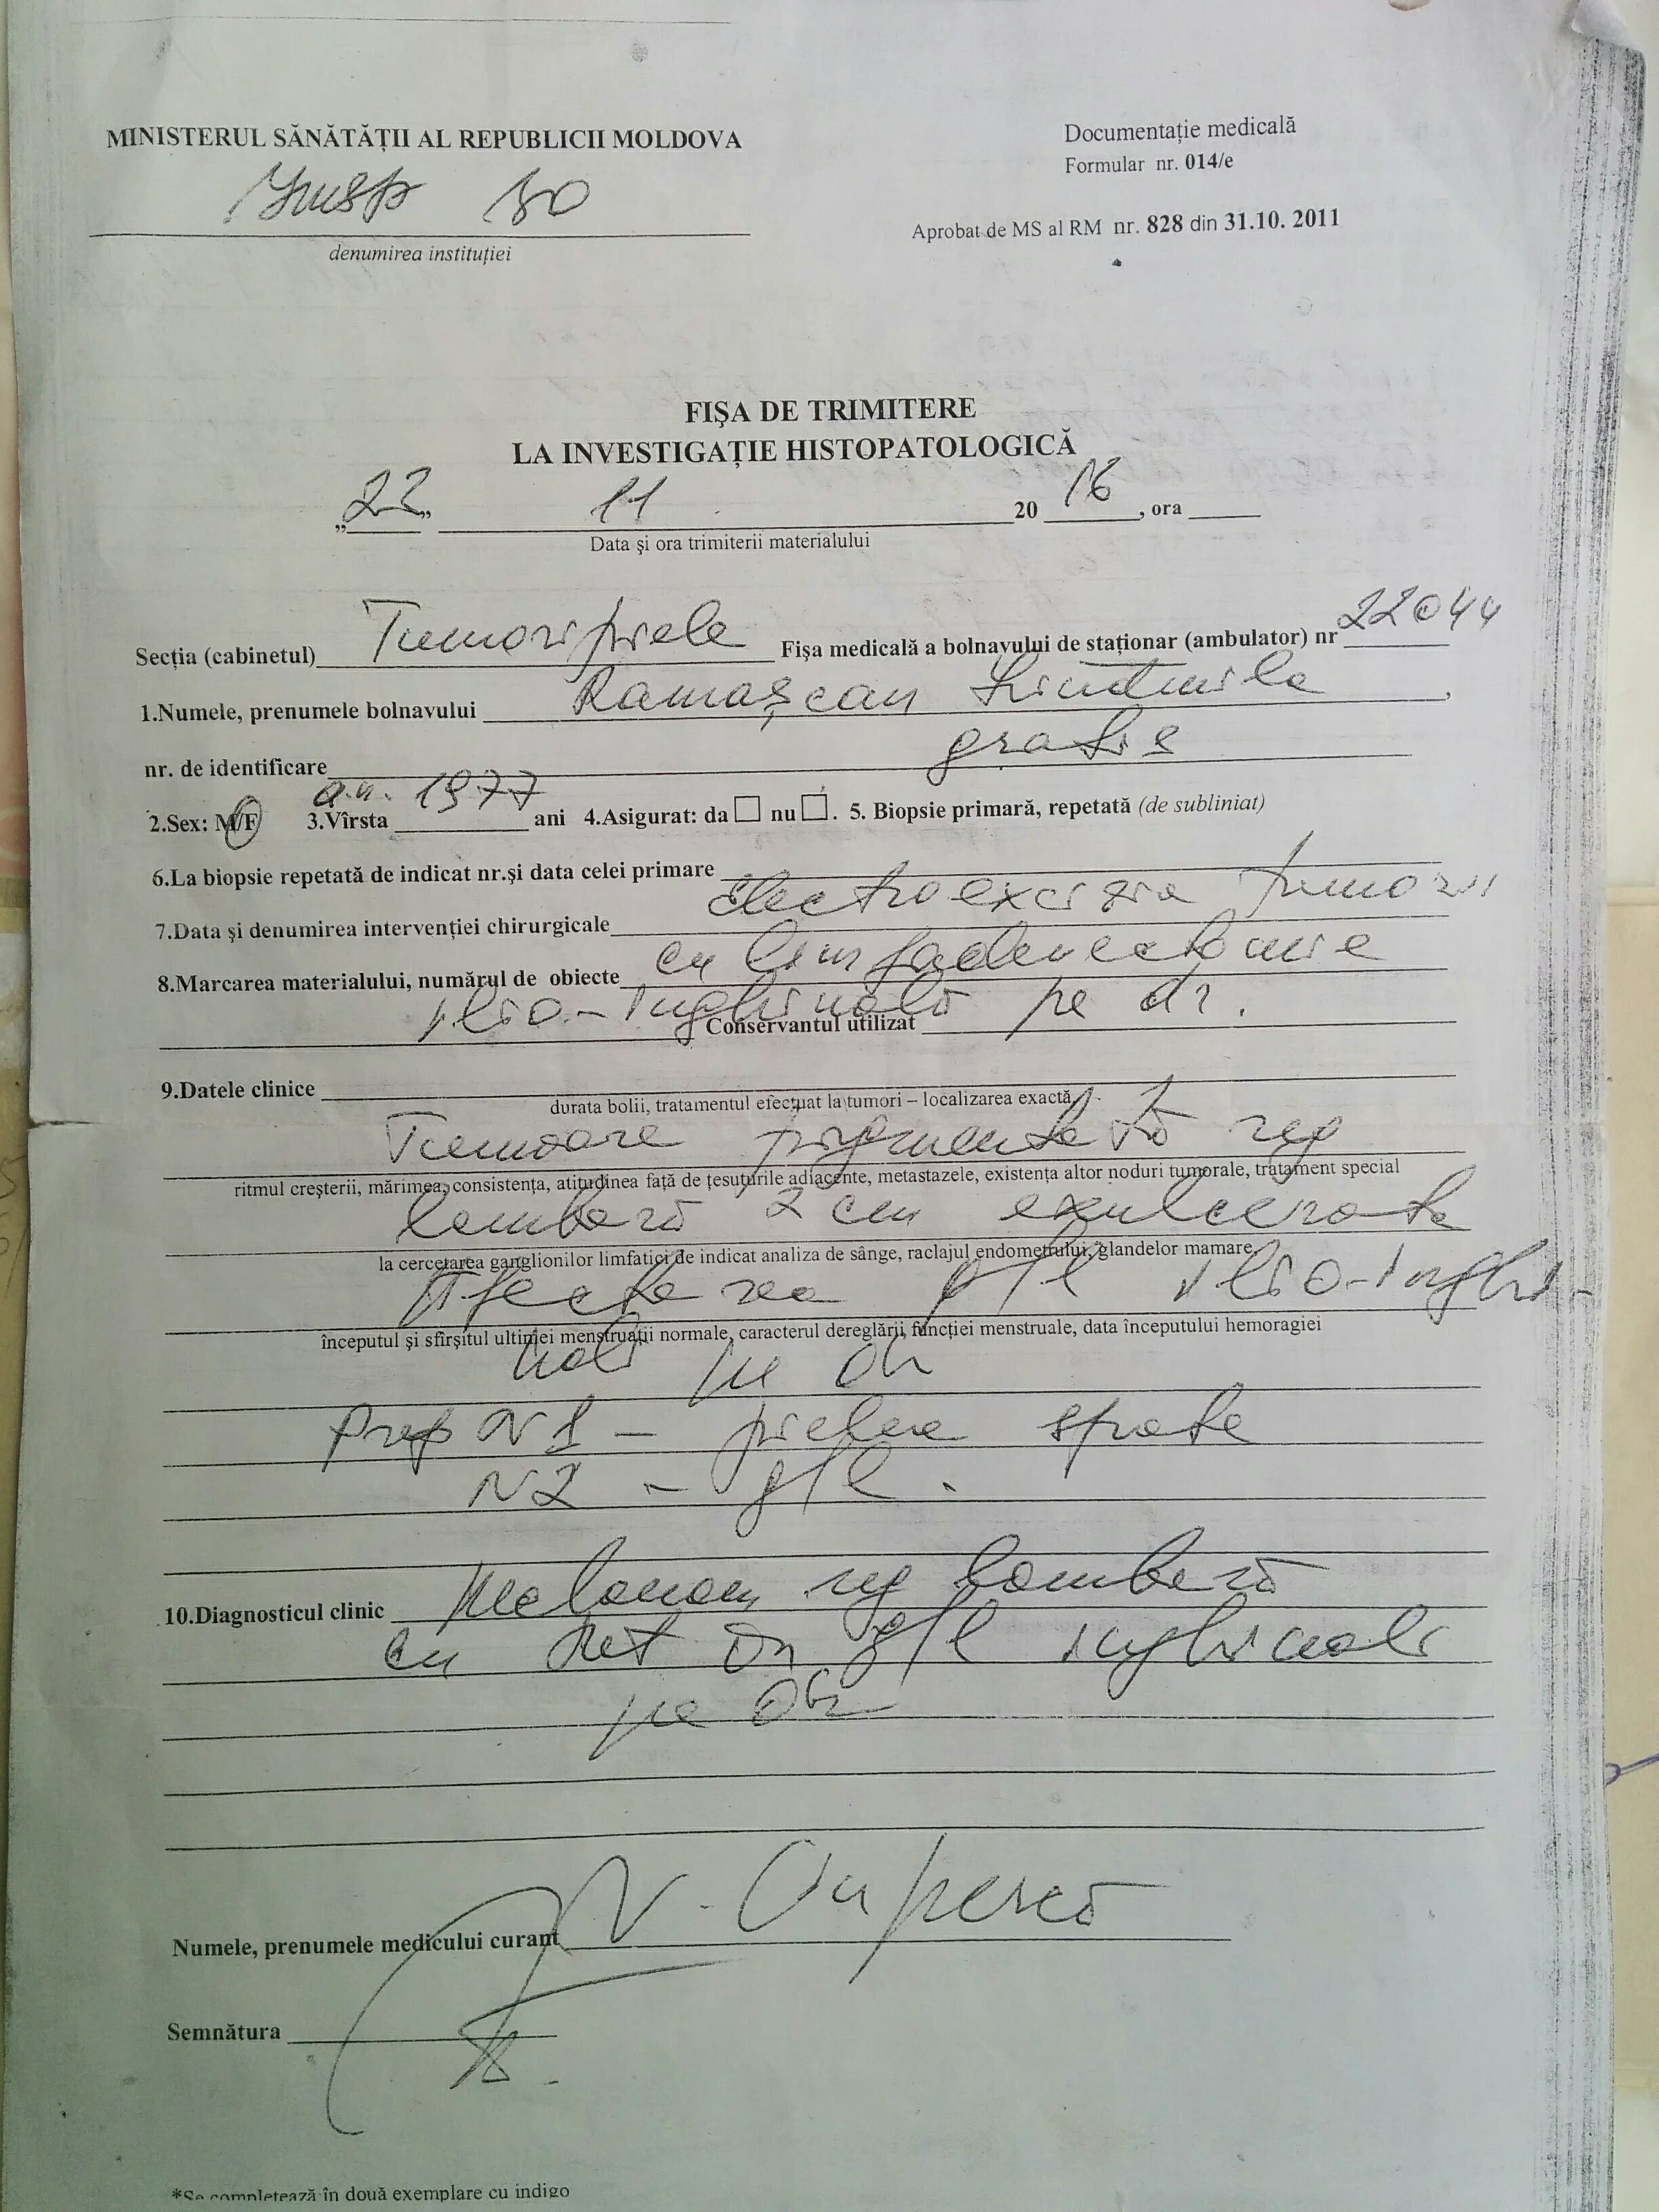 MINISTERUL SĂNĂTĂȚII AL REPUBLICII MOLDOVA
Documentație medicală
Formular nr. 014/e
IMSP IO
denumirea instituției
Aprobat de MS al RM nr. 828 din 31.10. 2011
FIŞA DE TRIMITERE
LA INVESTIGAȚIE HISTOPATOLOGICĂ
„22” 11 20 16, ora
Data şi ora trimiterii materialului
Secția (cabinetul) Tumori piele Fişa medicală a bolnavului de staționar (ambulator) nr 22044
1.Numele, prenumele bolnavului Ramașcan Liudmila,
nr. de identificare gratis
2.Sex: M/F 3.Vîrsta a.n. 1977 ani 4.Asigurat: da nu . 5. Biopsie primară, repetată (de subliniat)
6.La biopsie repetată de indicat nr.şi data celei primare
7.Data şi denumirea intervenției chirurgicale Electroexcizia tumorii
8.Marcarea materialului, numărul de obiecte cu limfadenectomie
ilio-inghinală pe dr.
Conservantul utilizat
9.Datele clinice
durata bolii, tratamentul efectuat la tumori – localizarea exactă
Tumoare pigmentată reg
ritmul creşterii, mărimea, consistența, atitudinea față de țesuturile adiacente, metastazele, existența altor noduri tumorale, tratament special
lombară 2 cm exulcerata
la cercetarea ganglionilor limfatici de indicat analiza de sânge, raclajul endometrului, glandelor mamare,
Afectarea g/l ilio-inghi-
începutul şi sfîrşitul ultimei menstruații normale, caracterul dereglării, funcției menstruale, data începutului hemoragiei
nali pe dr
Prep N1 – pielea spate
N2 – g/l.
10.Diagnosticul clinic Melanom reg lombară
cu Met în g/l inghinali
pe dr
Numele, prenumele medicului curant
Semnătura
*Se completează în două exemplare cu indigo